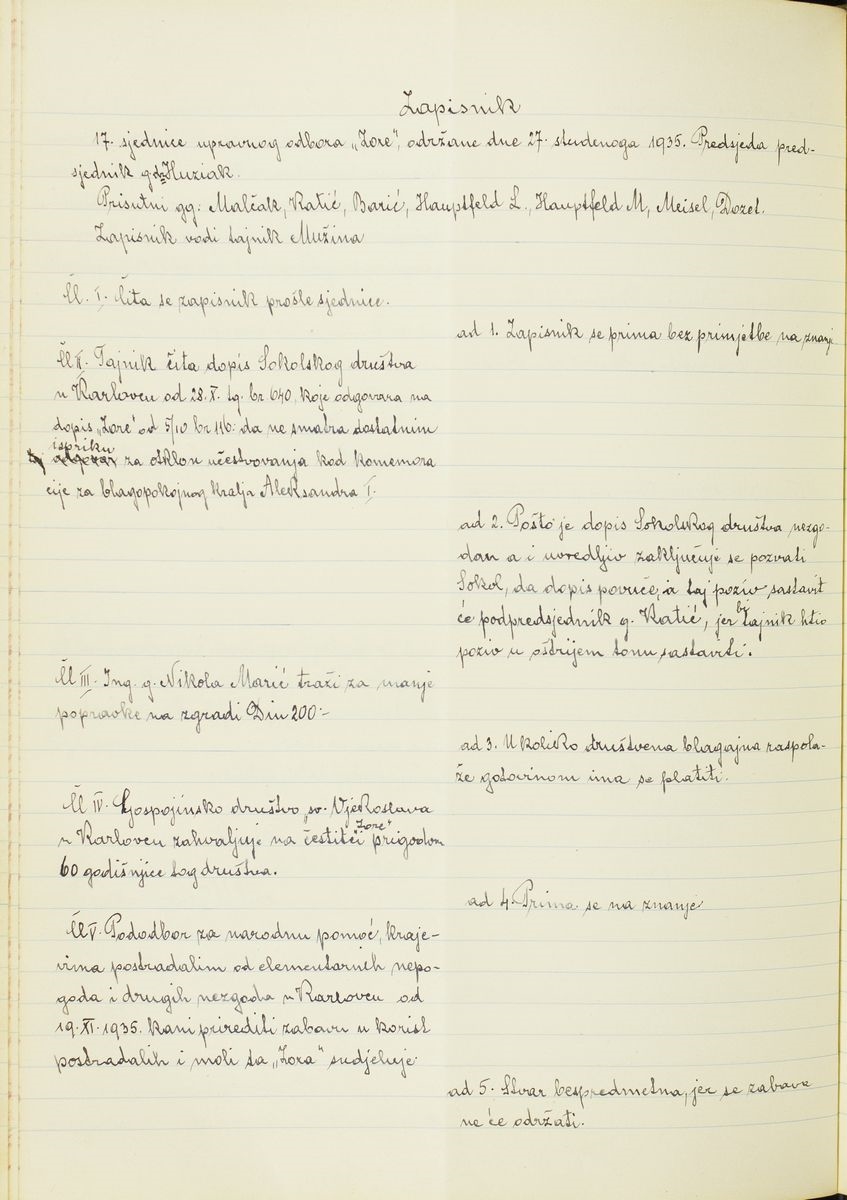 Zapisnik
17. sjednice upravnog odbora „Zore", održane dne 27. studenoga 1935. Predsjeda pred-
sjednik g. dr Huziak.
Prisutni gg: Malčak, Katić, Barić, Hauptfeld L., Hauptfeld M, Meisel, Dozet.
Zapisnik vodi tajnik Mužina
Čl. I. Čita se zapisnik prošle sjednice.
ad 1. Zapisnik se prima bez primjetbe na znanje
Čl II. Tajnik čita dopis Sokolskog društva
u Karlovcu od 28. X. tg. br 640, koje odgovara na
dopis „Zore" od 5/10 br 116: da ne smatra dostatnim
ispriku
za otklon učestvovanja kod komemora
cije za blagopokojnog kralja Aleksandra I.
ad 2. Pošto je dopis Sokolskog društva nezgo-
dan a i uvredljiv zaključuje se pozvati
Sokol, da dopis povuče, a taj poziv sastavit
će podpredsjednik g. Katić, jer bi tajnik htio
poziv u oštrijem tonu sastaviti.
Čl III. Ing. g. Nikola Marić traži za manje
popravke na zgradi Din 200.-
ad 3. Ukoliko društvena blagajna raspola-
že gotovinom ima se platiti.
Čl IV. Gospojinsko društvo „sv. Vjekoslava
u Karlovcu zahvaljuje na čestitci „Zore" prigodom
60 godišnjice tog društva.
ad 4. Prima se na znanje
Čl V. Pododbor za narodnu pomoć, kraje-
vima postradalim od elementarnih nepo-
goda i drugih nezgoda u Karlovcu od
19. XI. 1935. kani prirediti zabavu u korist
postradalih i moli da „Zora" sudjeluje.
ad 5. Stvar bespredmetna, jer se zabava
ne će održati.